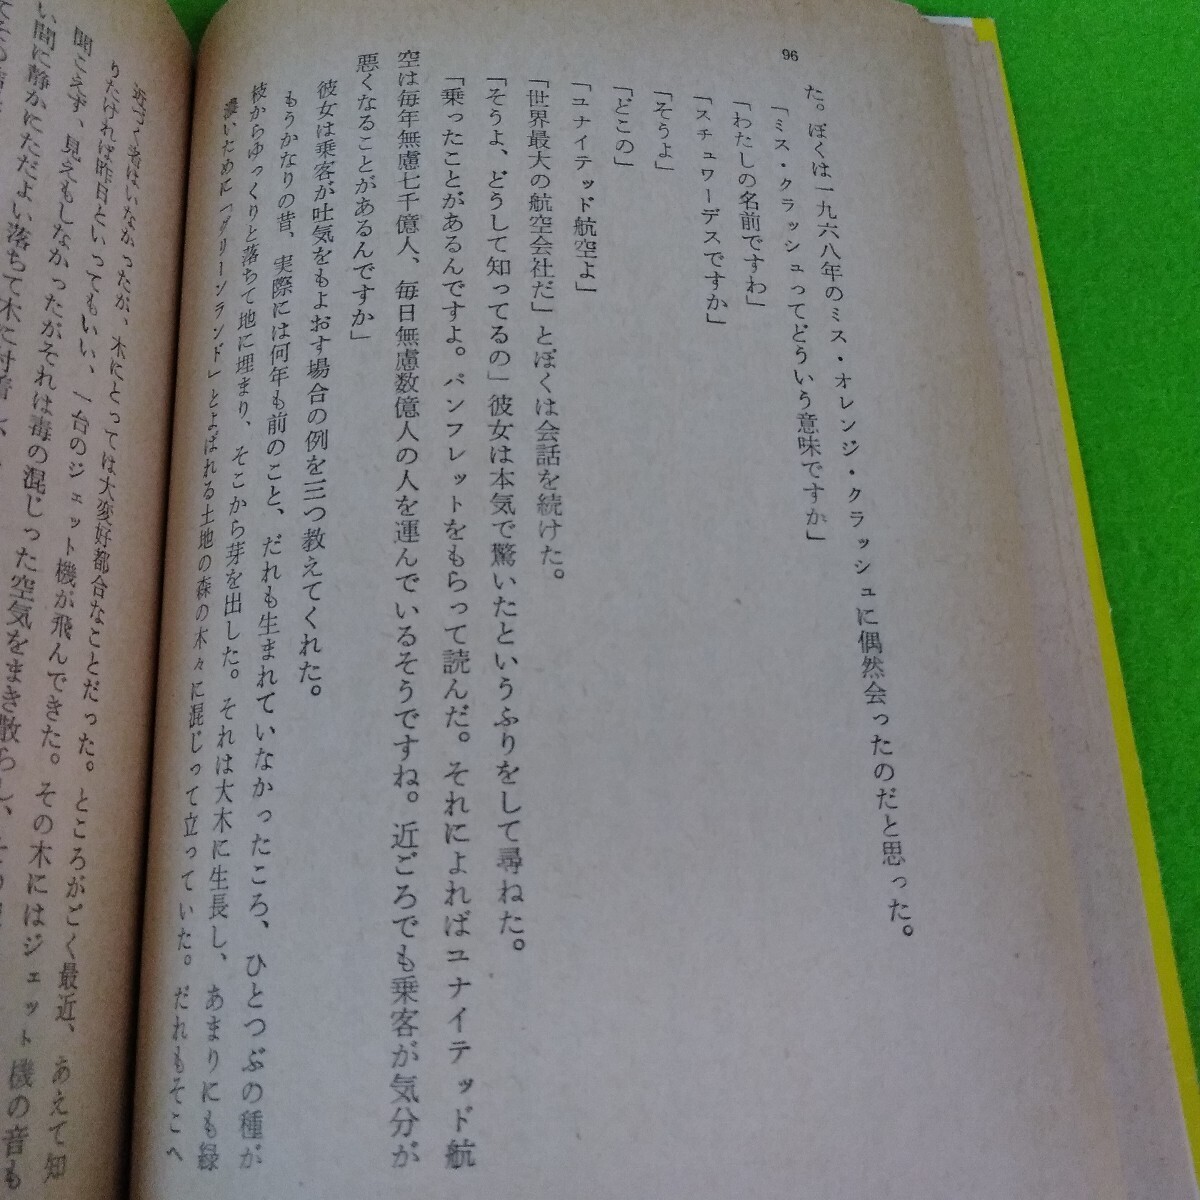 96
た。ぼくは一九六八年のミス・オレンジ・クラッシュに偶然会ったのだと思った。
「ミス・クラッシュってどういう意味ですか」
「わたしの名前ですわ」
「スチュワーデスですか」
「そうよ」
「どこの」
「ユナイテッド航空よ」
「世界最大の航空会社だ」とぼくは会話を続けた。
「そうよ、どうして知ってるの」彼女は本気で驚いたというふりをして尋ねた。
「乗ったことがあるんですよ。パンフレットをもらって読んだ。それによればユナイテッド航
空は毎年無慮七千億人、毎日無慮数億人の人を運んでいるそうですね。近ごろでも乗客が気分が
悪くなることがあるんですか」
彼女は乗客が吐気をもよおす場合の例を三つ教えてくれた。
もうかなりの昔、実際には何年も前のこと、だれも生まれていなかったころ、ひとつぶの種が
枝からゆっくりと落ちて地に埋まり、そこから芽を出した。それは大木に生長し、あまりにも緑
濃いために「グリーンランド」とよばれる土地の森の木々に混じって立っていた。だれもそこへ
近づく者はいなかったが、木にとっては大変好都合なことだった。ところがごく最近、あえて知
りたければ昨日といってもいい、一台のジェット機が飛んできた。その木にはジェット機の音も
聞こえず、見えもしなかったがそれは毒の混じった空気をまき散らし、
い間に静かにただよい落ちて木に付着し、